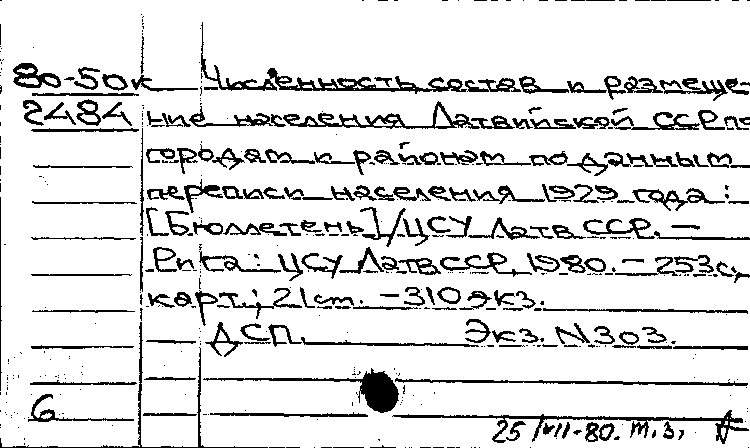 80-50к Численность, состав и размеще-
2484 ние населения Латвийской ССР по
городам и районам по данным
переписи населения 1929 года :
[Бюллетень]/ЦСУ Латв ССР. —
Рига : ЦСУ Латв ССР, 1980. – 253с,
карт.; 21 cm. – 310 экз.
ДСП. Экз. N303.
6
25/VII-80. т.з,